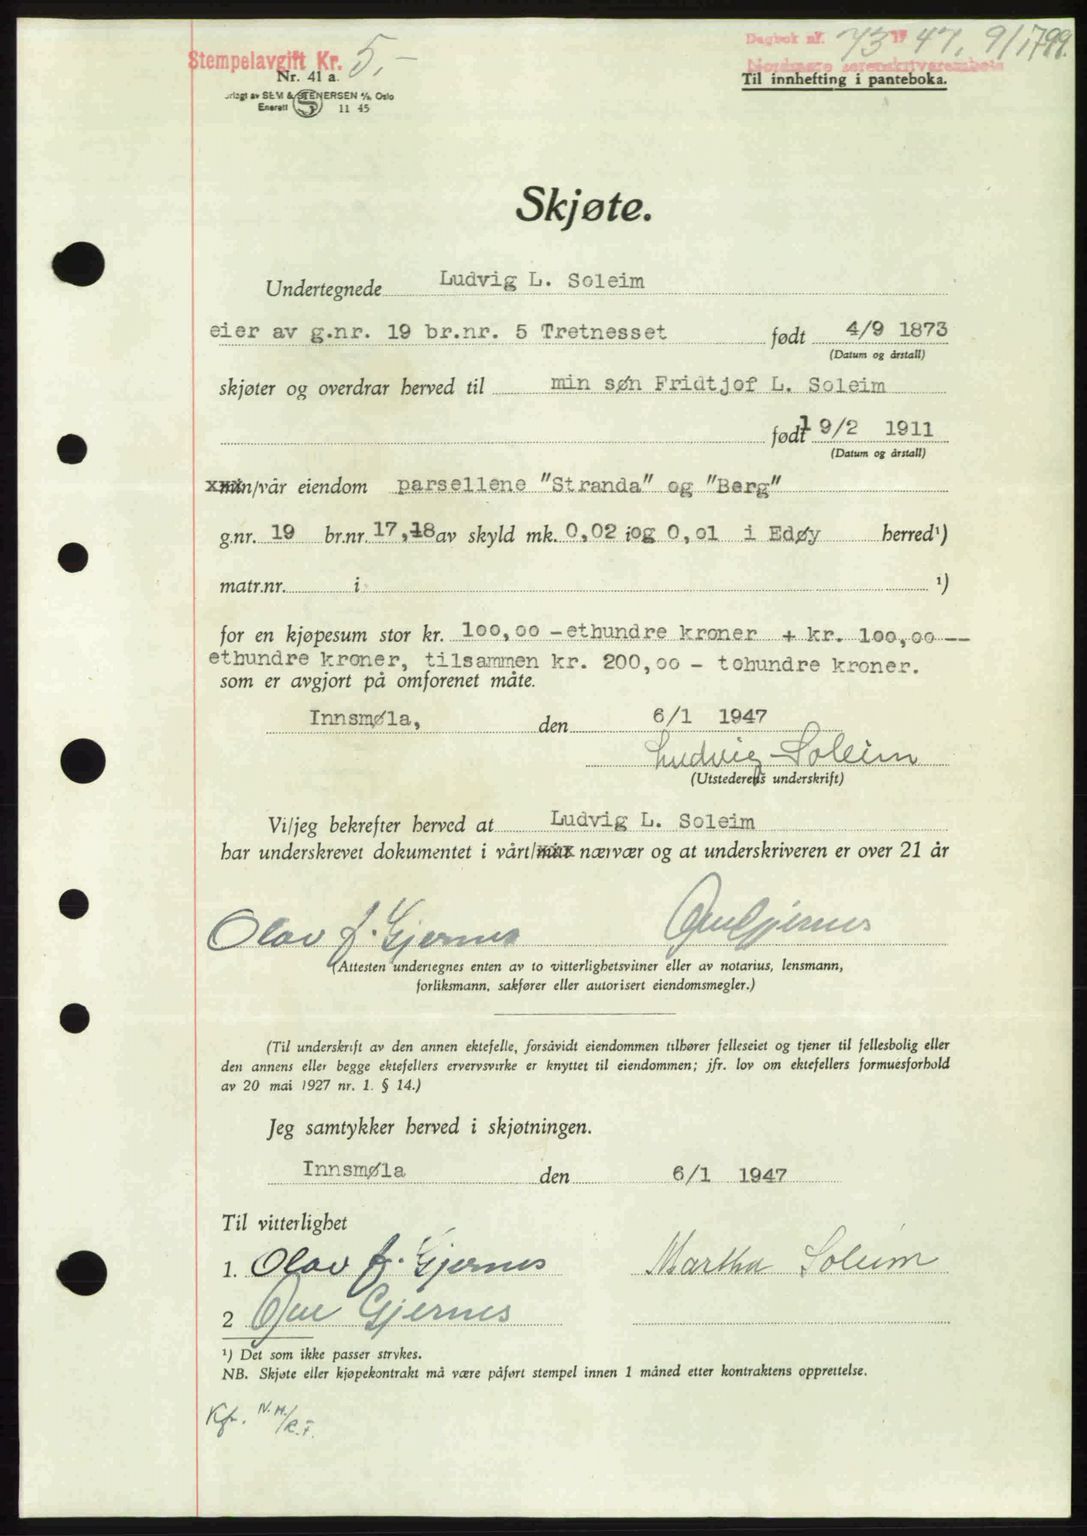 Stempelavgift Kr. 5,-
Dagbok nr. 73 19 47, 9/1 799.
Nordmøre sorenskriverembete
Nr. 41 a.
Til innhefting i panteboka.
SEM & STENERSEN A/S, Oslo
Enerett S 11 45
Skjøte.
Undertegnede Ludvig L. Soleim
eier av g.nr. 19 br.nr. 5 Tretnesset født 4/9 1873
(Datum og årstall)
skjøter og overdrar herved til min søn Fridtjof L. Soleim
født 19/2 1911
(Datum og årstall)
xxxmin/vår eiendom parsellene "Stranda" og "Berg"
g.nr. 19 br.nr. 17,18 av skyld mk. 0,02 og 0,01 i Edøy herred¹)
matr.nr. i ¹)
for en kjøpesum stor kr. 100,00 - ethundre kroner + kr. 100,00 --
ethundre kroner, tilsammen kr. 200,00 - tohundre kroner.
som er avgjort på omforenet måte.
Innsmøla, den 6/1 1947
Ludvig Soleim
(Utstederens underskrift)
Vi/jeg bekrefter herved at Ludvig L. Soleim
har underskrevet dokumentet i vårt/mitt nærvær og at underskriveren er over 21 år
Olav J. Gjernes Ove Gjernes
(Attesten undertegnes enten av to vitterlighetsvitner eller av notarius, lensmann,
forliksmann, sakfører eller autorisert eiendomsmegler.)
(Til underskrift av den annen ektefelle, forsåvidt eiendommen tilhører felleseiet og tjener til fellesbolig eller
den annens eller begge ektefellers ervervsvirke er knyttet til eiendommen; jfr. lov om ektefellers formuesforhold
av 20 mai 1927 nr. 1. § 14.)
Jeg samtykker herved i skjøtningen.
Innsmøla den 6/1 1947
Til vitterlighet
1. Olav J. Gjernes Martha Soleim
2 Ove Gjernes
¹) Det som ikke passer strykes.
NB. Skjøte eller kjøpekontrakt må være påført stempel innen 1 måned etter kontraktens opprettelse.
Kfr. N.M./R.F.